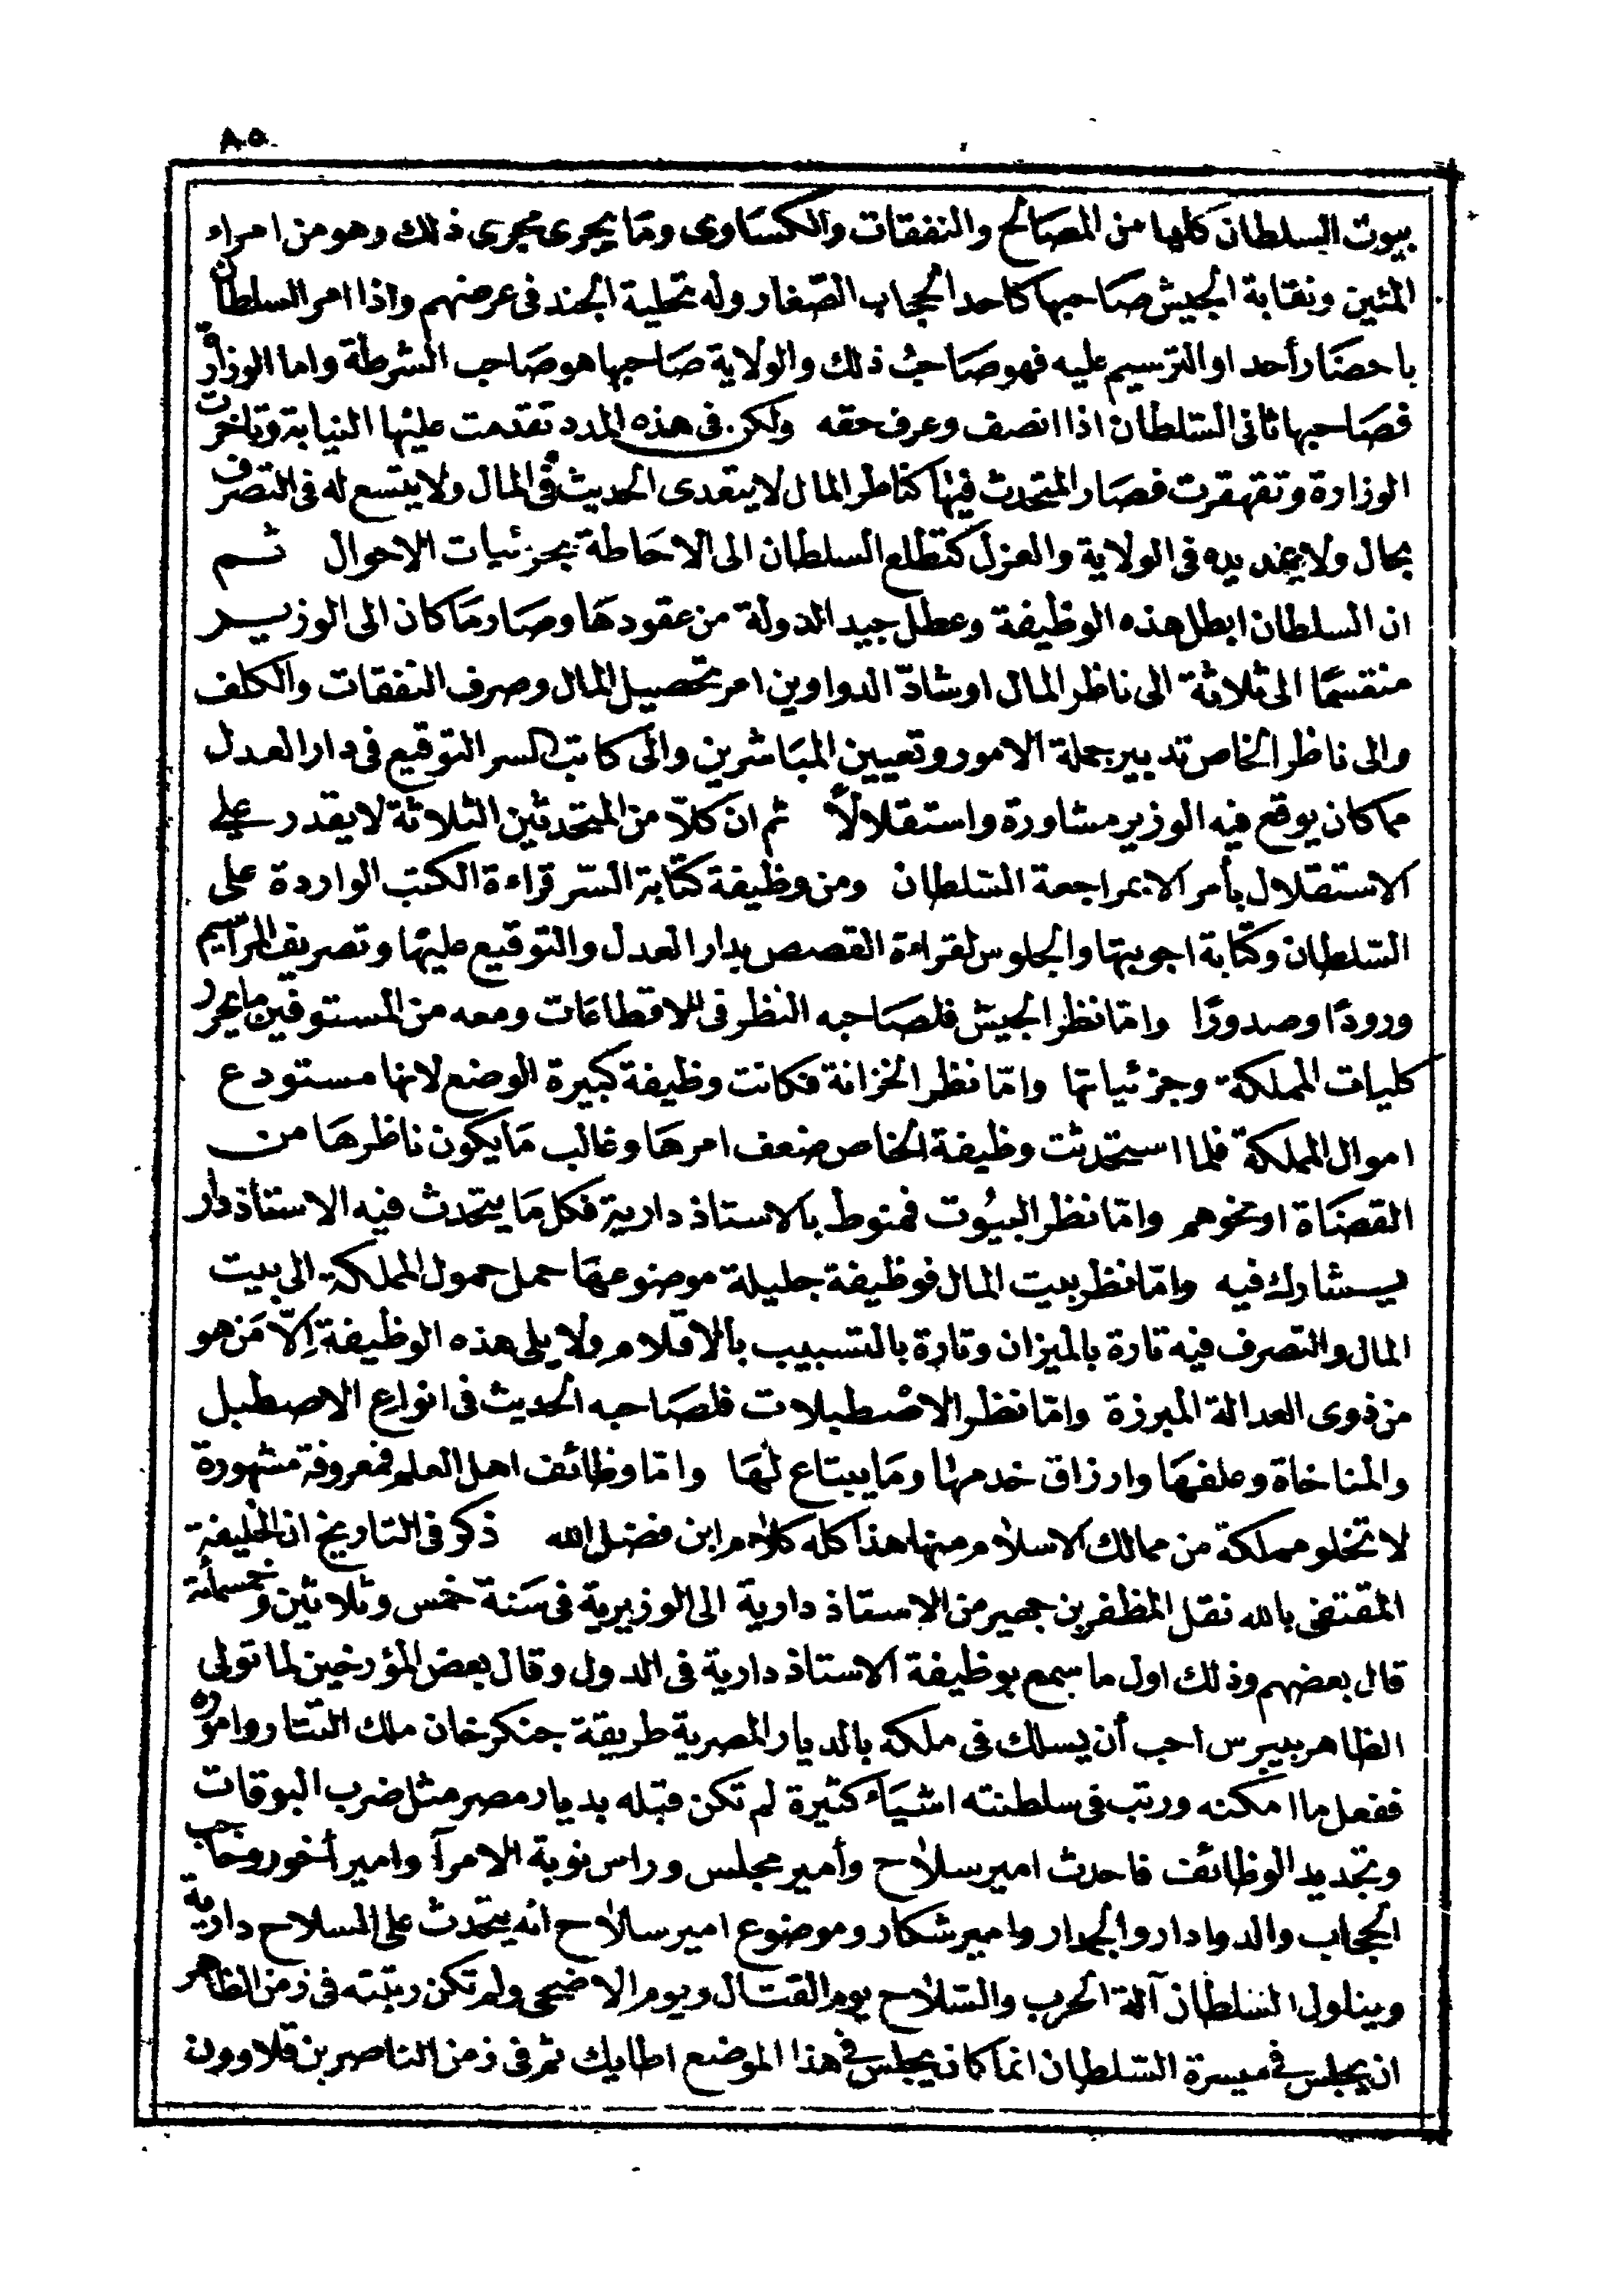 ٨٥٠
بيوت السلطان كلها من المصالح والنفقات والكساوى وما يجرى مجرى ذلك وهو من امراء
المئين ونقابة الجيش صاحبها كاحد الحجاب الصغار وله تحلية الجند فى عرضهم واذا امر السلطان
باحضار أحد او الترسيم عليه فهو صاحب ذلك والولاية صاحبها هو صاحب الشرطة واما الوزارة
فصاحبها ثانى السلطان اذا انصف وعرف حقه ولكن فى هذه المدد تقدمت عليها النيابة وتاخرت
الوزارة وتقهقرت فصار المتحدث فيها كناظر المال لا يتعدى الحديث فى المال ولا يتسع له فى التصرف
بحال ولا يمد يده فى الولاية والعزل كتطلع السلطان الى الاحاطة بجزئيات الاحوال ثم
ان السلطان ابطل هذه الوظيفة وعطل جيد الدولة من عقودها وصار ما كان الى الوزير
منقسما الى ثلاثة الى ناظر المال او شادّ الدواوين امر تحصيل المال وصرف النفقات والكلف
والى ناظر الخاص تدبير جملة الامور وتعيين المباشرين والى كاتب السر التوقيع فى دار العدل
مما كان يوقع فيه الوزير مشاورة واستقلالاً ثم ان كلاّ من المتحدثين الثلاثة لا يقدر على
الاستقلال بأمر الا بمراجعة السّلطان ومن وظيفة كتابة السّر قراءة الكتب الواردة على
السّلطان وكتابة اجوبتها والجلوس لقراءة القصص بدار العدل والتوقيع عليها وتصريف المراسيم
ورودًا وصدورًا وامّا نظر الجيش فلصاحبه النظر فى الاقطاعات ومعه من المستوفين ما يحرر
كليات المملكة وجزئياتها وامّا نظر الخزانة فكانت وظيفة كبيرة الوضع لانها مستودع
اموال المملكة فلما استحدثت وظيفة الخاص ضعف امرها وغالب ما يكون ناظرها من
القضاة او نحوهم وامّا نظر البيُوت فمنوط بالاستاذ دارية فكل ما يتحدث فيه الاستاذ دار
يشارك فيه وامّا نظر بيت المال فوظيفة جليلة موضوعها حمل حمول المملكة الى بيت
المال والتصرف فيه تارة بالميزان وتارة بالتسبيب بالاقلام ولا يلى هذه الوظيفة إلّا مَن هو
من ذوى العدالة المبرزة وامّا نظر الاصْطبلات فلصاحبه الحديث فى انواع الاصطبل
والمناخاة وعلفها وارزاق خدمها وما يبتاع لها وامّا وظائف اهل العلم فمعروفة مشهورة
لا تخلو مملكة من ممالك الاسلام منها هذا كله كلام ابن فضل الله ذكر فى التاريخ ان الخليفة
المقتفى بالله نقل المظفر بن جهير من الاستاذ دارية الى الوزيرية فى سَنة خمس وثلاثين وخمسمائة
قال بعضهم وذلك اول ما سمع بوظيفة الاستاذ دارية فى الدول وقال بعض المؤرخين لما تولى
الظاهر بيبرس احب أن يسلك فى ملكه بالديار المصرية طريقة جنكزخان ملك التتار واموره
ففعل ما امكنه ورتب فى سلطنته اشياء كثيرة لم تكن قبله بديار مصر مثل ضرب البوقات
وتجديد الوظائف فاحدث امير سلاح وأمير مجلس وراس نوبة الامرآ وامير أخور وحاجب
الحجاب والدوادار والجمدار وامير شكار وموضوع امير سلاح انه يتحدث على السلاح دارية
ويناول السلطان آلة الحرب والسّلاح يوم القتال ويوم الاضحى ولم تكن رتبته فى زمن الظاهر
ان يجلس فى ميسرة السّلطان انما كان يجلس فى هذا الموضع اطابك ثم فى زمن الناصر بن قلاوون